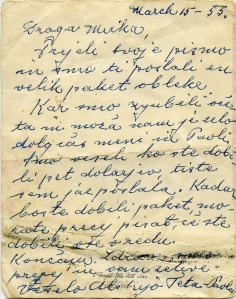 March 15 - 55.
Draga Mirka,
Prijeli svoje pismo
in smo ti poslali en
velik paket obleke.
Kar smo zgubili
ta in moža nam je zelo
dolg čas mini in Pavli
smo veseli ko ste dobi
li pet dolarjov, tiste
sem jas poslala. Kadar
boste dobili paket, mo
rate precej pisat, če ste
dobili vse v redu.
Končam. Zdravi
in vam želive
Veselo Alelujo Teta